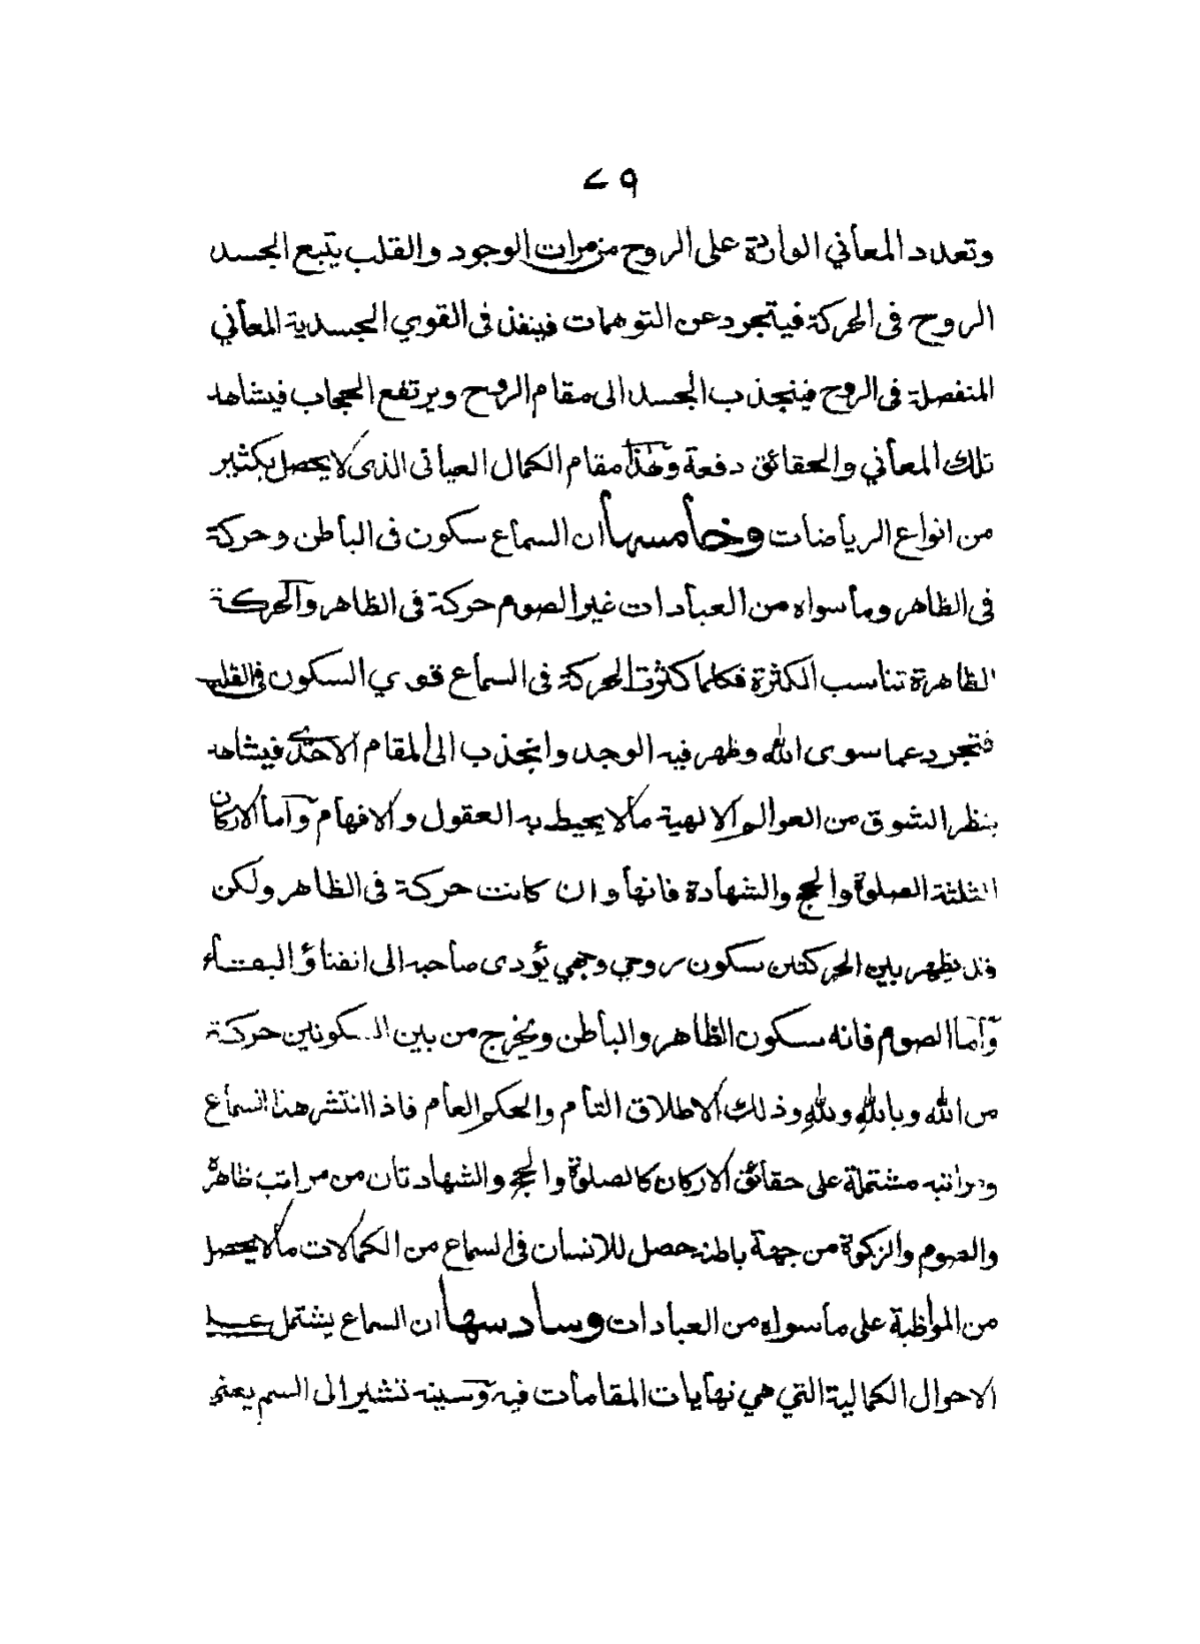 ٧٩
وتعدد المعأني الواردة على الروح من مرات الوجود والقلب يتبع الجسد
الروح فى الحركة فيتجرد عن التوهمات فينفذ فى القوي الجسدية المعأني
المنفصلة فى الروح فينجذب الجسد الى مقام الروح ويرتفع الحجاب فيشاهد
تلك المعأني والحقائق دفعة وهذا مقام الكمال العيانى الذى لا يحصل بكثير
من انواع الريأضات وخأمسهأ ان السماع سكون فى البأطن وحركة
فى الظاهر ومأسواه من العبأدات غير الصوم حركة فى الظاهر والحركة
الظاهرة تناسب الكثرة فكلما كثرت الحركة فى السمأع قوي السكون فى القلب
فتجرد عما سوى الله وظهر فيه الوجد وانجذب الى المقام الاحدى فيشاهد
بنظر الشوق من العوالم الالهية مألا يحيط به العقول والافهأم وأمأ الاركان
الثلثة الصلوة والحج والشهأدة فانهأ وان كانت حركة فى الظاهر ولكن
قد يظهر بين الحركتين سكون روحي وجهي يؤدى صأحبه الى الفنأؤ البقأء
وأما الصوم فانه سكون الظاهر والبأطن ويخرج من بين السكونين حركة
من الله وبالله ولله وذلك الاطلاق التأم والحكم العأم فاذا انتشر هذا السمأع
ومراتبه مشتملة على حقائق الاركان كالصلوة والحج والشهادتان من مراتب ظاهرة
والصوم والزكوة من جهة باطنه حصل للانسان فى السماع من الكمالات مألا يحصل
من المواظبة على مأسواه من العبأدات وسادسهأ ان السماع يشتمل على
الاحوال الكمالية التي هي نهأيات المقامأت فيه وسينه تشير الى السم يعنى